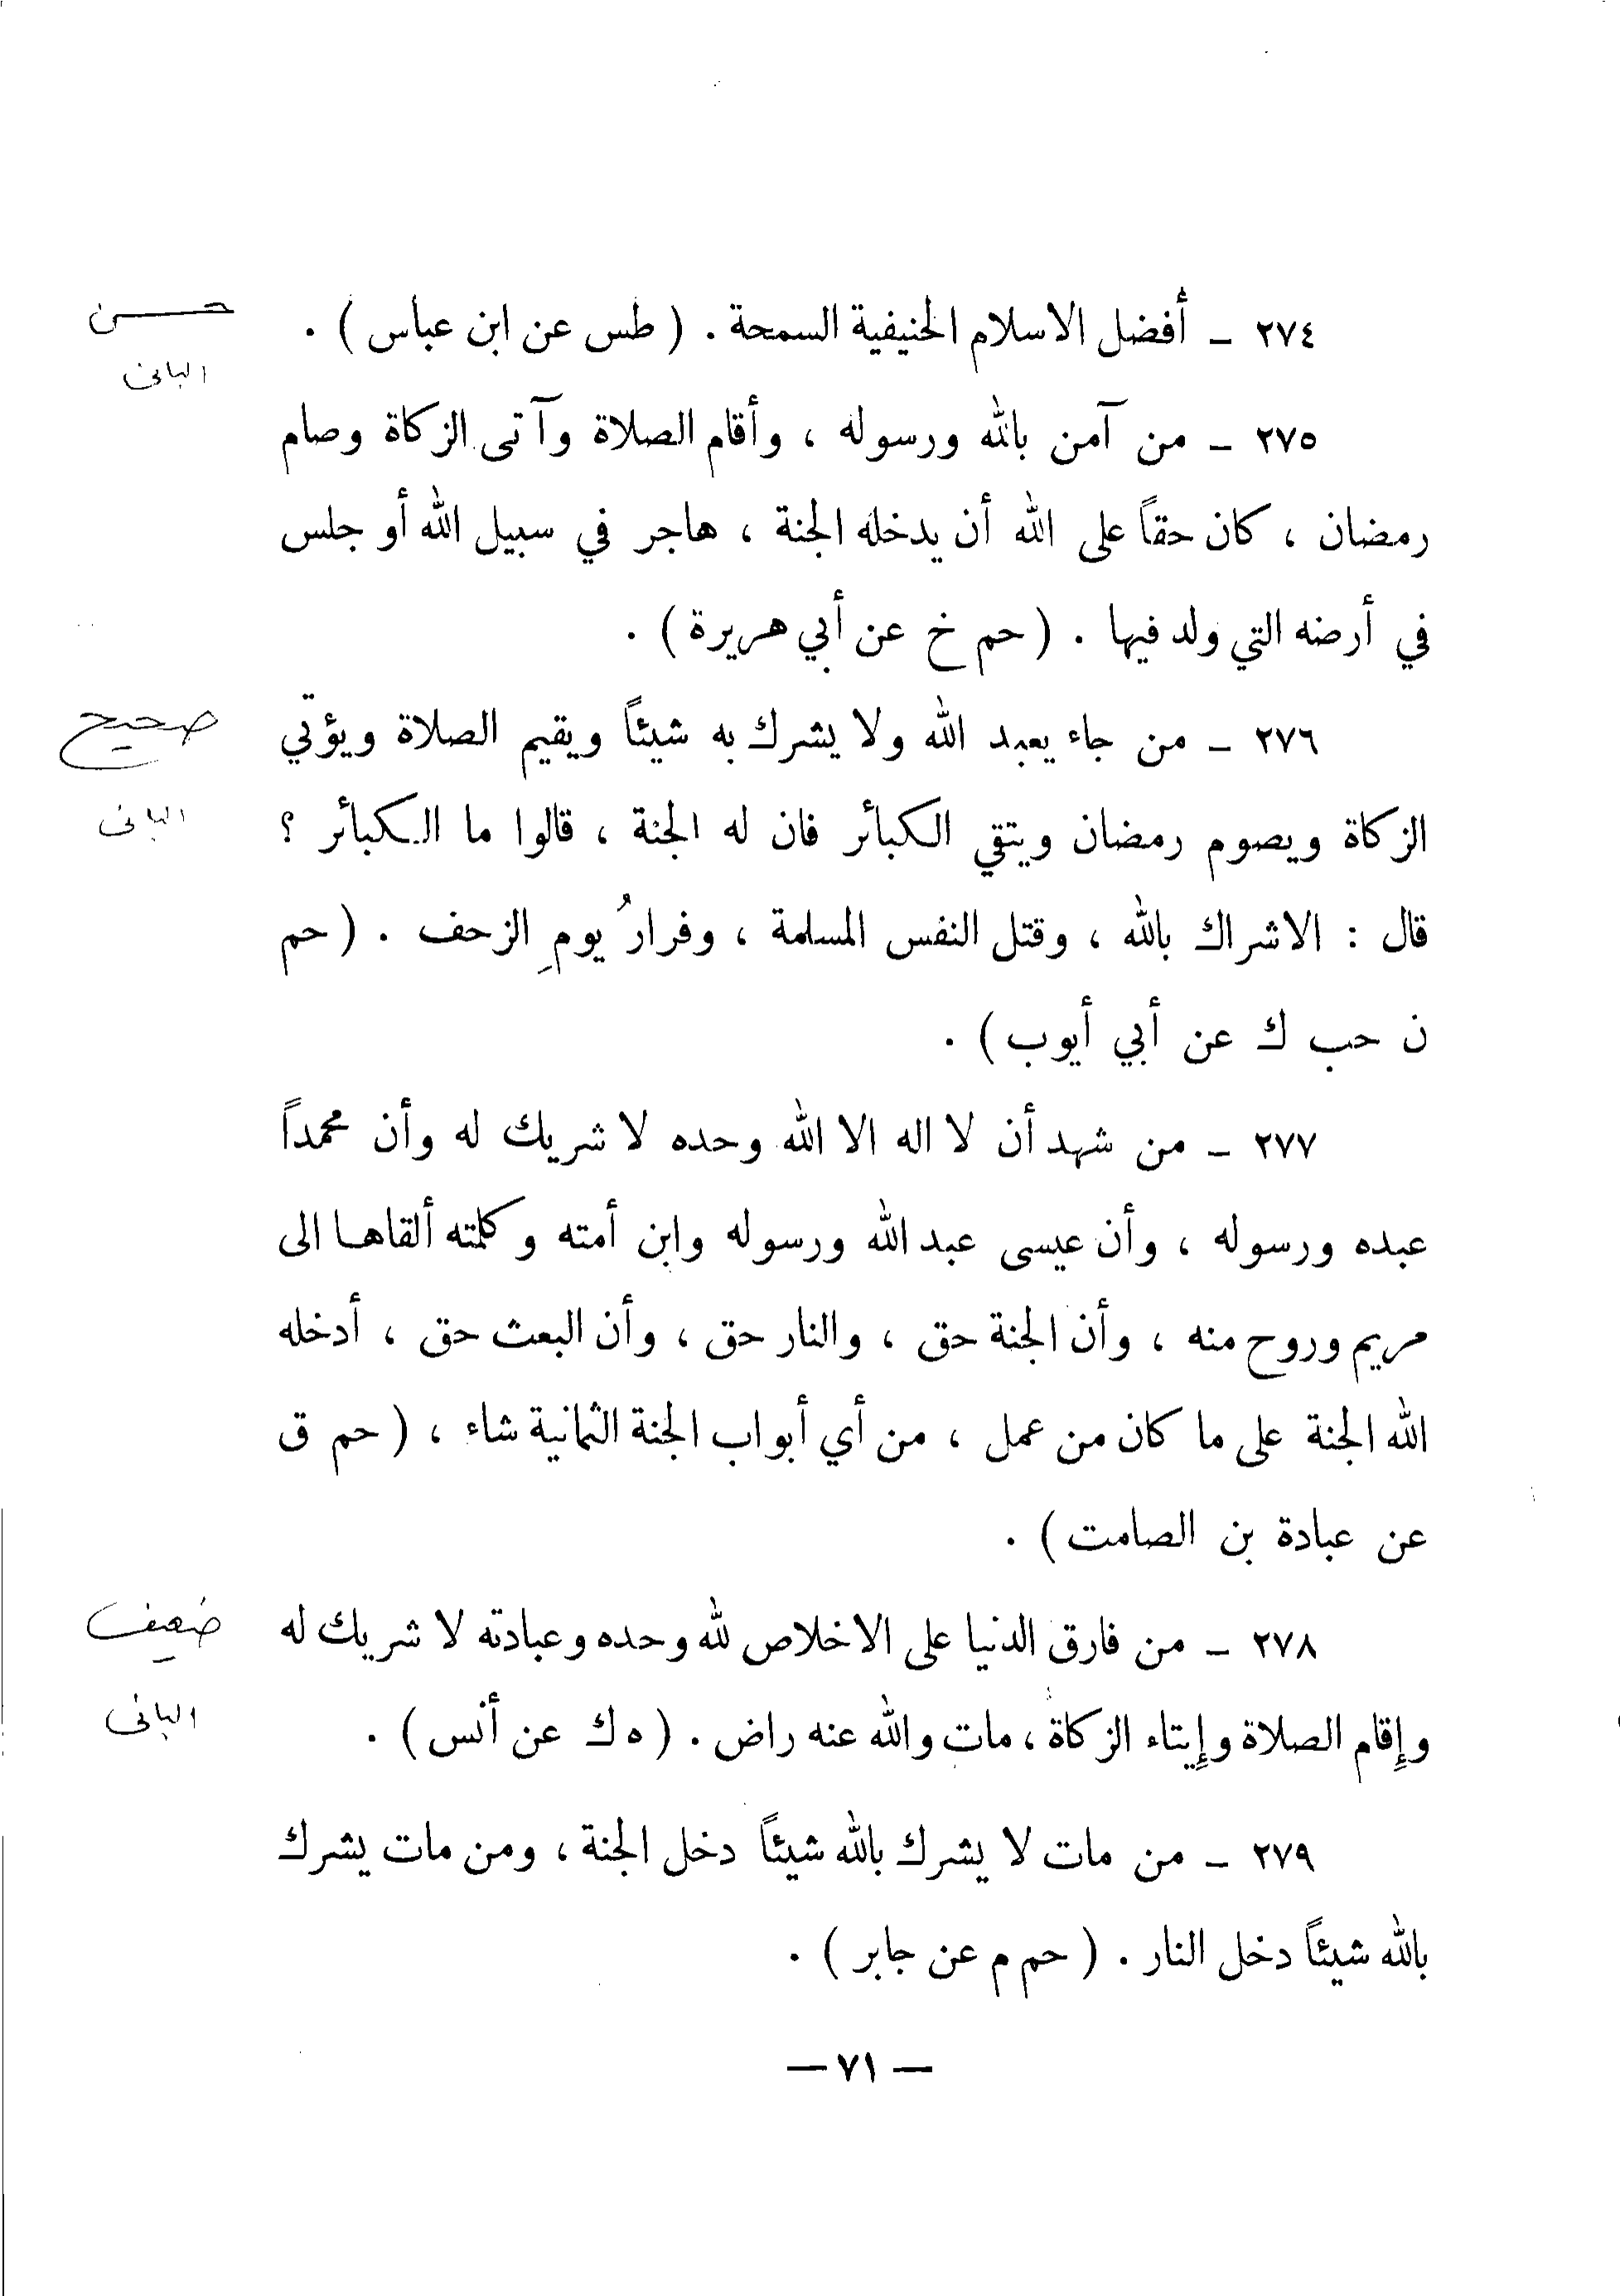 ٢٧٤ – أفضل الاسلام الحنيفية السمحة . ( طس عن ابن عباس ) .
حسن
البانى
٢٧٥ – من آمن بالله ورسوله ، وأقام الصلاة وآتى الزكاة وصام
رمضان ، كان حقاً على الله أن يدخله الجنة ، هاجر في سبيل الله أو جلس
في أرضه التي ولد فيها . ( حم خ عن أبي هريرة ) .
٢٧٦ – من جاء يعبد الله ولا يشرك به شيئاً ويقيم الصلاة ويؤتي
صحيح
البانى
الزكاة ويصوم رمضان ويتقي الكبائر فان له الجنة ، قالوا ما الكبائر ؟
قال : الاشراك بالله ، وقتل النفس المسلمة ، وفرارُ يومِ الزحف . ( حم
ن حب ك عن أبي أيوب ) .
٢٧٧ – من شهد أن لا اله الا الله وحده لا شريك له وأن محمداً
عبده ورسوله ، وأن عيسى عبد الله ورسوله وابن أمته وكلمته ألقاها الى
مريم وروح منه ، وأن الجنة حق ، والنار حق ، وأن البعث حق ، أدخله
الله الجنة على ما كان من عمل ، من أي أبواب الجنة الثمانية شاء ، ( حم ق
عن عبادة بن الصامت ) .
٢٧٨ – من فارق الدنيا على الاخلاص لله وحده وعبادته لا شريك له
ضعيف
البانى
وإقام الصلاة وإيتاء الزكاة ، مات والله عنه راض . ( ه ك عن أنس ) .
٢٧٩ – من مات لا يشرك بالله شيئاً دخل الجنة ، ومن مات يشرك
بالله شيئاً دخل النار . ( حم م عن جابر ) .
— ٧١ —